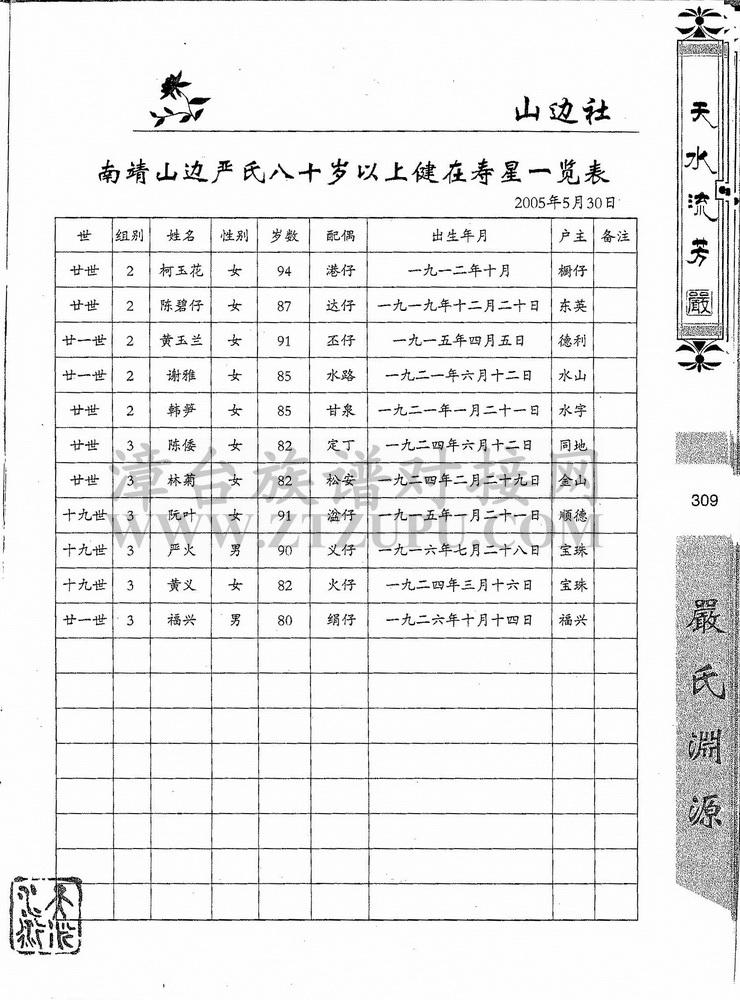 山边社
南靖山边严氏八十岁以上健在寿星一览表
2005年5月30日
世 组别 姓名 性别 岁数 配偶 出生年月 户主 备注
廿世 2 柯玉花 女 94 港仔 一九一二年十月 橱仔
廿世 2 陈碧仔 女 87 达仔 一九一九年十二月二十日 东英
廿一世 2 黄玉兰 女 91 丕仔 一九一五年四月五日 德利
廿一世 2 谢雅 女 85 水路 一九二一年六月十二日 水山
廿世 2 韩笋 女 85 甘泉 一九二一年一月二十一日 水字
廿世 3 陈倭 女 82 定丁 一九二四年六月十二日 同地
廿世 3 林菊 女 82 松安 一九二四年二月二十九日 金山
十九世 3 阮叶 女 91 溢仔 一九一五年一月二十一日 顺德
十九世 3 严火 男 90 义仔 一九一六年七月二十八日 宝珠
十九世 3 黄义 女 82 火仔 一九二四年三月十六日 宝珠
廿一世 3 福兴 男 80 绢仔 一九二六年十月十四日 福兴
漳台族谱对接网
WWW.ZTZUPU.COM
天水流芳
嚴
309
嚴氏淵源